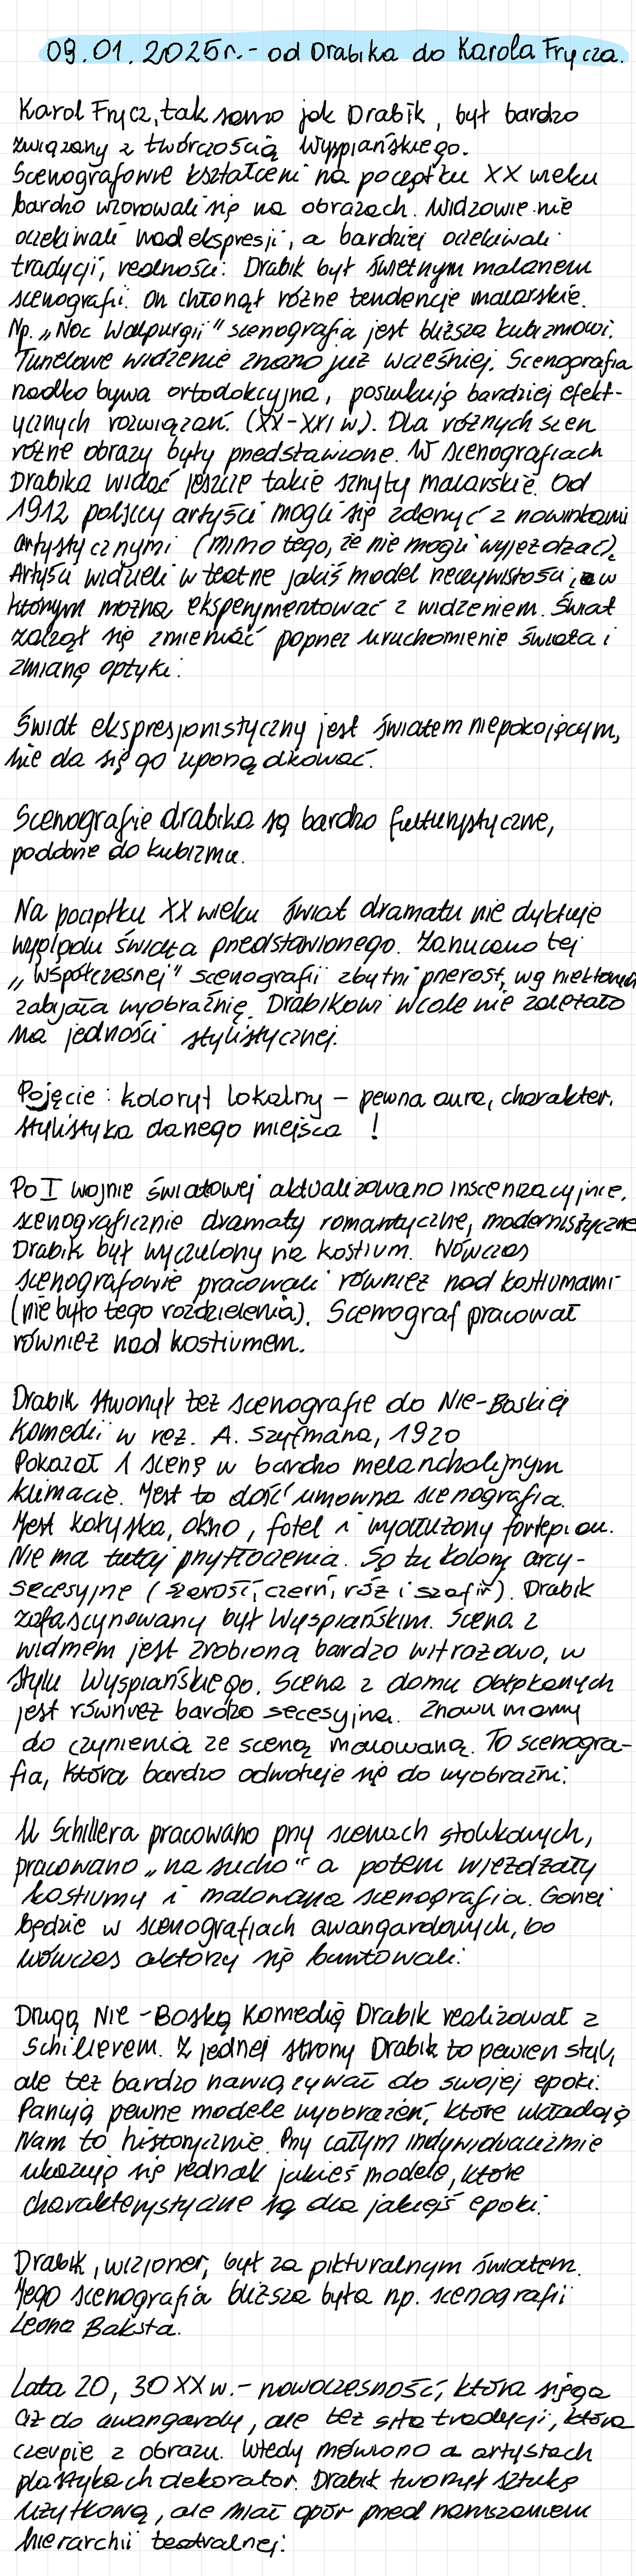 09.01.2025r. - od Drabika do Karola Frycza.
Karol Frycz, tak samo jak Drabik, był bardzo
związany z twórczością Wyspiańskiego.
Scenografowie kształceni na początku XX wieku
bardzo wzorowali się na obrazach. Widzowie nie
oczekiwali nadekspresji, a bardziej oczekiwali
tradycji, realności. Drabik był świetnym malarzem
scenografii. On chłonął różne tendencje malarskie.
Np. „Noc Walpurgii" scenografia jest bliższa kubizmowi.
Tunelowe widzenie znano już wcześniej. Scenografia
rzadko bywa ortodokcyjna, poszukuję bardziej efekt-
ycznych rozwiązań. (XX-XXI w). Dla różnych scen
różne obrazy były przedstawione. W scenografiach
Drabika widać jeszcze takie sznyty malarskie. Od
1912 polscy artyści mogli się zderzyć z nowinkami
artystycznymi (mimo tego, że nie mogli wyjeżdżać).
Artyści widzieli w teatrze jakiś model rzeczywistości, w
którym można eksperymentować z widzeniem. Świat
zaczął się zmieniać poprzez uruchomienie świata i
zmianę optyki.
Świat ekspresjonistyczny jest światem niepokojącym,
nie da się go uporządkować.
Scenografie drabika są bardzo futurystyczne,
podobnie do kubizmu.
Na początku XX wieku świat dramatu nie dyktuje
wyglądu świata przedstawionego. Zarzucano tej
„Współczesnej" scenografii zbytni przerost, wg niektórych
zabijała wyobraźnię. Drabikowi wcale nie zależało
na jedności stylistycznej.
Pojęcie: koloryt lokalny - pewna aura, charakter.
stylistyka danego miejsca !
Po I wojnie światowej aktualizowano inscenizacyjnie,
scenograficznie dramaty romantyczne, modernistyczne
Drabik był wyczulony na kostium. Wówczas
scenografowie pracowali również nad kostiumami
(nie było tego rozdzielenia). Scenograf pracował
również nad kostiumem.
Drabik stworzył też scenografie do Nie-Boskiej
Komedii w reż. A. Szyfmana, 1920
Pokazał 1 scenę w bardzo melancholijnym
klimacie. Jest to dość umowna scenografia.
Jest kołyska, okno, fotel i wydłużony fortepian.
Nie ma tutaj przytłoczenia. Są tu kolory arcy-
secesyjne (szarość, czerń, róż i szafir). Drabik
zafascynowany był Wyspiańskim. Scena z
widmem jest zrobiona bardzo witrażowo, w
stylu Wyspiańskiego. Scena z domu Obłąkanych
jest również bardzo secesyjna. Znowu mamy
do czynienia ze sceną malowaną. To scenogra-
fia, która bardzo odwołuje się do wyobraźni.
U Schillera pracowano przy scenach stolikowych,
pracowano „na sucho" a potem wjeżdżały
kostiumy i malowana scenografia. Gorzej
będzie w scenografiach awangardowych, bo
wówczas aktorzy się buntowali.
Drugą Nie-Boską Komedię Drabik realizował z
Schillerem. Z jednej strony Drabik to pewien styl,
ale też bardzo nawiązywał do swojej epoki.
Panują pewne modele wyobrażeń, które układają
Nam to historycznie. Przy całym indywidualizmie
ukazuję się jednak jakieś modele, które
charakterystyczne są dla jakiejś epoki.
Drabik, wizjoner, był za pikturalnym światem.
Jego scenografia bliższa była np. scenografii
Leona Baksta.
Lata 20, 30 XX w. - nowoczesność, która sięga
aż do awangardy, ale też siła tradycji, która
czerpie z obrazu. Wtedy mówiono a artystach
plastykach dekorator. Drabik tworzył sztukę
użytkową, ale miał opór przed naruszaniem
hierarchii teatralnej.